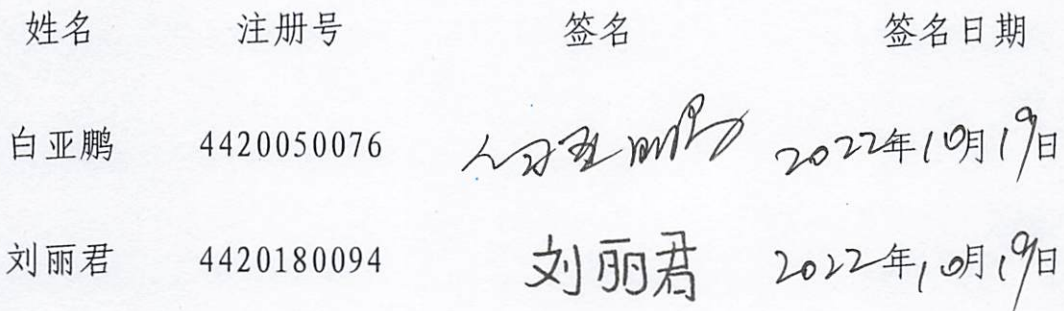 姓名 注册号 签名 签名日期
白亚鹏 4420050076 白亚鹏 2022年10月19日
刘丽君 4420180094 刘丽君 2022年10月19日